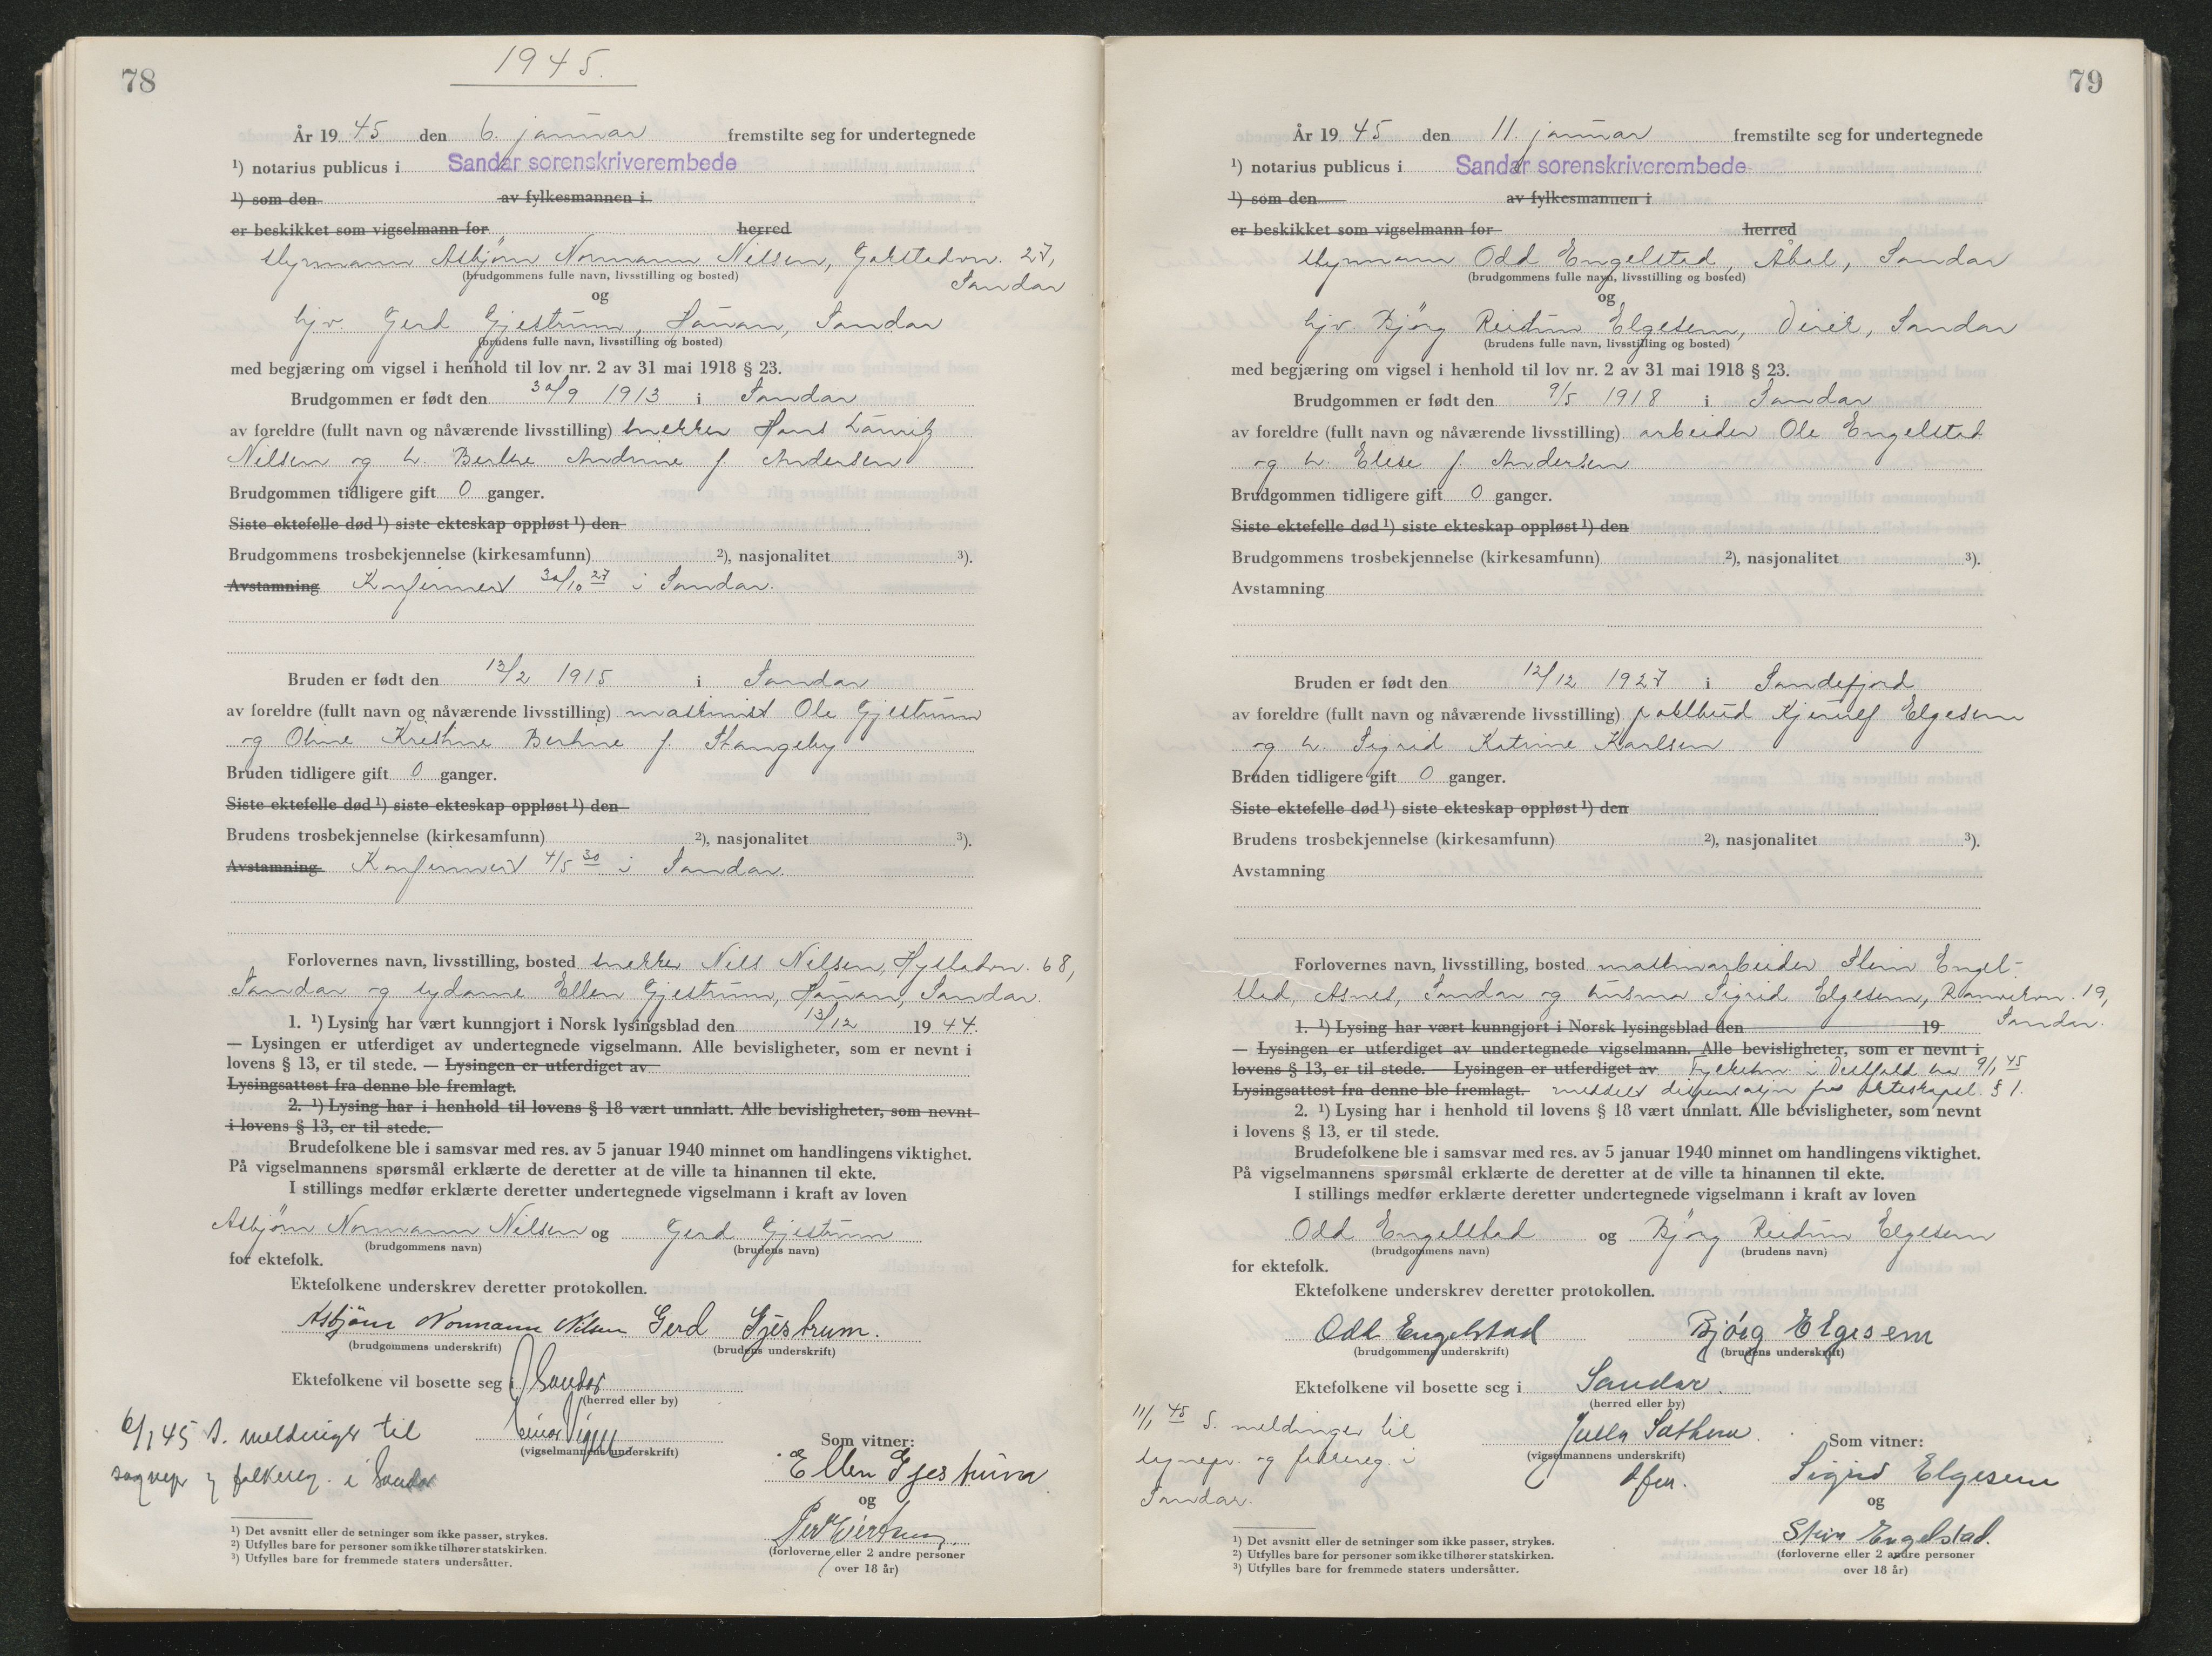 78
1945.
År 19 45 den 6. januar fremstilte seg for undertegnede
¹) notarius publicus i Sandar sorenskriverembede
¹) som den av fylkesmannen i
er beskikket som vigselmann for herred
styrmann Asbjörn Normann Nilsen, Gokstadvn. 27,
(brudgommens fulle navn, livsstilling og bosted) Sandar
og
hjv. Gerd Gjestrum, Hauan, Sandar
(brudens fulle navn, livsstilling og bosted)
med begjæring om vigsel i henhold til lov nr. 2 av 31 mai 1918 § 23.
Brudgommen er født den 30/9 1913 i Sandar
av foreldre (fullt navn og nåværende livsstilling) snekker Hans Lauritz
Nilsen og h. Berthe Andrine f. Andersen
Brudgommen tidligere gift 0 ganger.
Siste ektefelle død ¹) siste ekteskap oppløst ¹) den
Brudgommens trosbekjennelse (kirkesamfunn) ²), nasjonalitet ³).
Avstamning Konfirmert 30/10 27 i Sandar.
Bruden er født den 13/2 1915 i Sandar
av foreldre (fullt navn og nåværende livsstilling) maskinist Ole Gjestrum
og Oline Kristine Berthine f. Stangeby
Bruden tidligere gift 0 ganger.
Siste ektefelle død ¹) siste ekteskap oppløst ¹) den
Brudens trosbekjennelse (kirkesamfunn) ²), nasjonalitet ³).
Avstamning Konfirmert 4/5 30 i Sandar.
Forlovernes navn, livsstilling, bosted snekker Nils Nilsen, Hystadvn. 68,
Sandar og sydame Ellen Gjestrum, Hauan, Sandar.
1. ¹) Lysing har vært kunngjort i Norsk lysingsblad den 13/12 19 44.
— Lysingen er utferdiget av undertegnede vigselmann. Alle bevisligheter, som er nevnt i
lovens § 13, er til stede. — Lysingen er utferdiget av
Lysingsattest fra denne ble fremlagt.
2. ¹) Lysing har i henhold til lovens § 18 vært unnlatt. Alle bevisligheter, som nevnt
i lovens § 13, er til stede.
Brudefolkene ble i samsvar med res. av 5 januar 1940 minnet om handlingens viktighet.
På vigselmannens spørsmål erklærte de deretter at de ville ta hinannen til ekte.
I stillings medfør erklærte deretter undertegnede vigselmann i kraft av loven
Asbjörn Normann Nilsen og Gerd Gjestrum
(brudgommens navn) (brudens navn)
for ektefolk.
Ektefolkene underskrev deretter protokollen.
Asbjörn Normann Nilsen Gerd Gjestrum.
(brudgommens underskrift) (brudens underskrift)
Ektefolkene vil bosette seg i Sandar
(herred eller by)
6/1 45 S. meldinger til
(vigselmannens underskrift) Som vitner:
sognepr og folkereg. i Sandar Ellen Gjestrum
og
(forloverne eller 2 andre personer
over 18 år)
¹) Det avsnitt eller de setninger som ikke passer, strykes.
²) Utfylles bare for personer som ikke tilhører statskirken.
³) Utfylles bare for fremmede staters undersåtter.
79
År 19 45 den 11. januar fremstilte seg for undertegnede
¹) notarius publicus i Sandar sorenskriverembede
¹) som den av fylkesmannen i
er beskikket som vigselmann for herred
styrmann Odd Engelstad, Åbol, Sandar
(brudgommens fulle navn, livsstilling og bosted)
og
hjv. Bjørg Reidun Elgesem, Virik, Sandar
(brudens fulle navn, livsstilling og bosted)
med begjæring om vigsel i henhold til lov nr. 2 av 31 mai 1918 § 23.
Brudgommen er født den 9/5 1918 i Sandar
av foreldre (fullt navn og nåværende livsstilling) arbeider Ole Engelstad
og h. Elise f. Andersen
Brudgommen tidligere gift 0 ganger.
Siste ektefelle død ¹) siste ekteskap oppløst ¹) den
Brudgommens trosbekjennelse (kirkesamfunn) ²), nasjonalitet ³).
Avstamning
Bruden er født den 12/12 1927 i Sandefjord
av foreldre (fullt navn og nåværende livsstilling) postbud Kjerulf Elgesem
og h. Sigrid Katrine Karlsen
Bruden tidligere gift 0 ganger.
Siste ektefelle død ¹) siste ekteskap oppløst ¹) den
Brudens trosbekjennelse (kirkesamfunn) ²), nasjonalitet ³).
Avstamning
Forlovernes navn, livsstilling, bosted maskinarbeider Stein Engel-
stad, Asnes, Sandar og husmor Sigrid Elgesem, Ranvikvn. 19,
1. ¹) Lysing har vært kunngjort i Norsk lysingsblad den 19 Sandar.
— Lysingen er utferdiget av undertegnede vigselmann. Alle bevisligheter, som er nevnt i
lovens § 13, er til stede. — Lysingen er utferdiget av Fylkesm. i Vestfold har 9/1 45
Lysingsattest fra denne ble fremlagt. meddelt dispensasjon fra ekteskapsl. § 1.
2. ¹) Lysing har i henhold til lovens § 18 vært unnlatt. Alle bevisligheter, som nevnt
i lovens § 13, er til stede.
Brudefolkene ble i samsvar med res. av 5 januar 1940 minnet om handlingens viktighet.
På vigselmannens spørsmål erklærte de deretter at de ville ta hinannen til ekte.
I stillings medfør erklærte deretter undertegnede vigselmann i kraft av loven
Odd Engelstad og Bjørg Reidun Elgesem
(brudgommens navn) (brudens navn)
for ektefolk.
Ektefolkene underskrev deretter protokollen.
Odd Engelstad Bjørg Elgesem
(brudgommens underskrift) (brudens underskrift)
Ektefolkene vil bosette seg i Sandar.
(herred eller by)
11/1 45 S. meldinger til
(vigselmannens underskrift) Som vitner:
sognepr. og folkereg. i Sigrid Elgesem
Sandar. og
Stein Engelstad.
(forloverne eller 2 andre personer
over 18 år)
¹) Det avsnitt eller de setninger som ikke passer, strykes.
²) Utfylles bare for personer som ikke tilhører statskirken.
³) Utfylles bare for fremmede staters undersåtter.